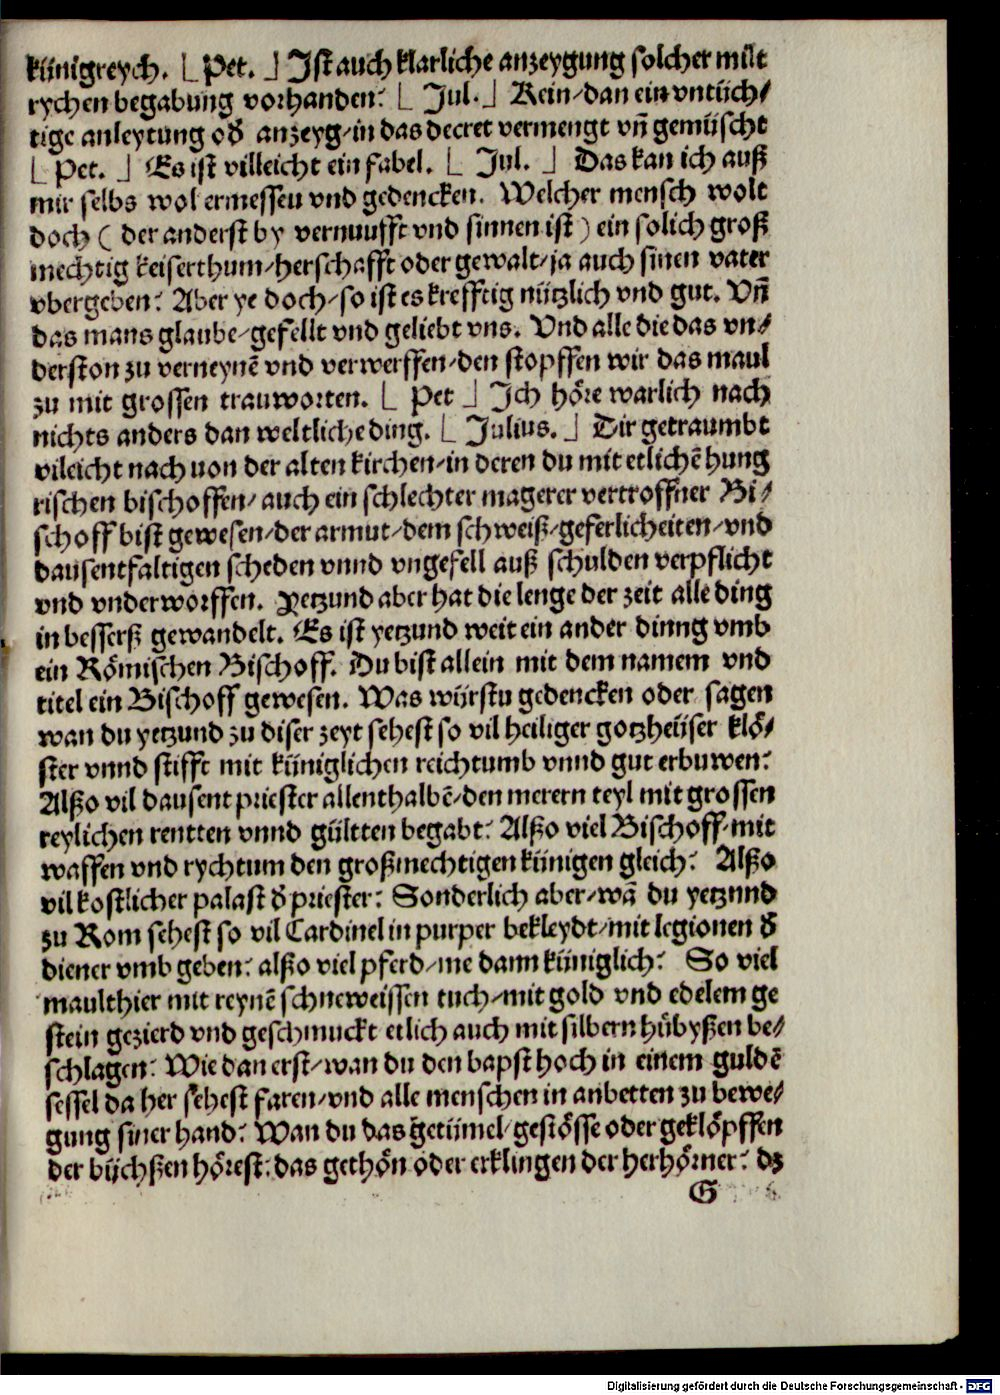 künigreych. ⌊ Pet. ⌋ Jst auch klarliche anzeygung solcher milt
rychen begabung vorhanden? ⌊ Jul. ⌋ Kein/dan ein vntüch/
tige anleytung oď anzeyg/in das decret vermengt vñ gemüscht
⌊ Pet. ⌋ Es ist villeicht ein fabel. ⌊ Jul. ⌋ Das kan ich auß
mir selbs wol ermessen vnd gedencken. Welcher mensch wolt
doch ( der anderst by vernuufft vnd sinnen ist ) ein solich groß
mechtig keiserthum/herschafft oder gewalt/ja auch sinen vater
vbergeben? Aber ye doch/so ist es krefftig nützlich vnd gut. Vñ
das mans glaube/gefellt vnd geliebt vns. Vnd alle die das vn/
derston zu verneynē vnd verwerffen/den stopffen wir das maul
zu mit grossen trauworten. ⌊ Pet ⌋ Jch höre warlich nach
nichts anders dan weltliche ding. ⌊ Julius. ⌋ Dir getraumbt
vileicht nach uon der alten kirchen/in deren du mit etlichē hung
rischen bischoffen/auch ein schlechter magerer vertroffner Bi/
schoff bist gewesen/der armut/dem schweiß/geferlicheiten/vnd
dausentfaltigen scheden vnnd vngefell auß schulden verpflicht
vnd vnderworffen. Yetzund aber hat die lenge der zeit alle ding
in besserß gewandelt. Es ist yetzund weit ein ander dinng vmb
ein Römischen Bischoff. Du bist allein mit dem namem vnd
titel ein Bischoff gewesen. Was würstu gedencken oder sagen
wan du yetzund zu diser zeyt sehest so vil heiliger gotzheüser klö/
ster vnnd stifft mit küniglichen reichtumb vnnd gut erbuwen?
Alßo vil dausent priester allenthalbē/den merern teyl mit grossen
reylichen rentten vnnd gültten begabt? Alßo viel Bischoff/mit
waffen vnd rychtum den großmechtigen künigen gleich? Alßo
vil kostlicher palast ď priester? Sonderlich aber/wā du yetzund
zu Rom sehest so vil Cardinel in purper bekleydt/mit legionen ď
diener vmb geben? alßo viel pferd/me dann küniglich? So viel
maulthier mit reynē schneweissen tuch/mit gold vnd edelem ge
stein gezierd vnd geschmuckt etlich auch mit silbern hübyßen be/
schlagen? Wie dan erst/wan du den bapst hoch in einem guldē
sessel da her sehest faren/vnd alle menschen in anbetten zu bewe/
gung siner hand? Wan du das getümel/gestösse oder geklöpffen
der büchßen hörest? das gethön oder erklingen der herhörner? dz
G
Digitalisierung gefördert durch die Deutsche Forschungsgemeinschaft - DFG